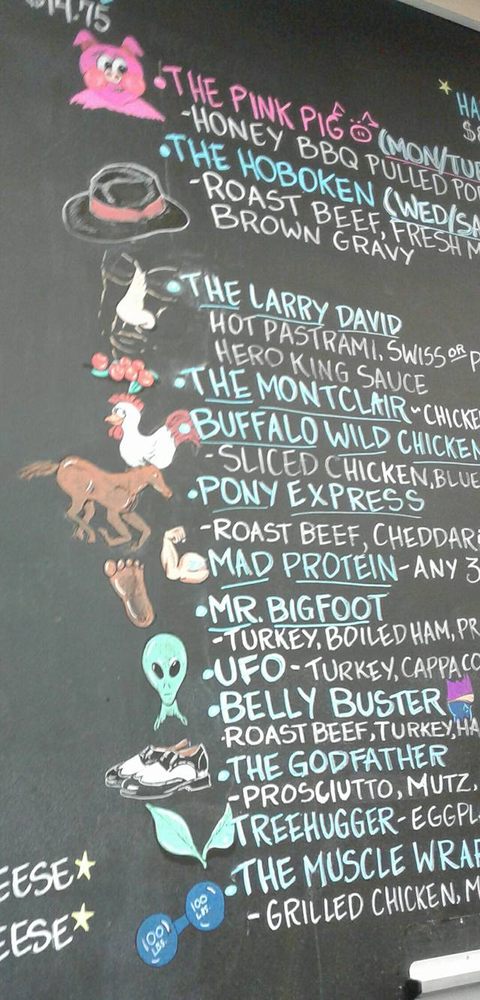 $14.75
HA
•THE PINK PIG (MON/TUE
$8
-HONEY BBQ PULLED PO
•THE HOBOKEN (WED/SA
-ROAST BEEF, FRESH M
BROWN GRAVY
•THE LARRY DAVID
HOT PASTRAMI, SWISS OR P
HERO KING SAUCE
•THE MONTCLAIR~CHICKE
•BUFFALO WILD CHICKEN
-SLICED CHICKEN, BLUE
•PONY EXPRESS
-ROAST BEEF, CHEDDAR
MAD PROTEIN-ANY 3
•MR. BIGFOOT
-TURKEY, BOILED HAM, PR
•UFO-TURKEY, CAPPACO
•BELLY BUSTER
ROAST BEEF, TURKEY, HA
•THE GODFATHER
-PROSCIUTTO, MUTZ,
TREEHUGGER-EGGPL
•THE MUSCLE WRAP
-GRILLED CHICKEN, M
EESE
EESE
100 LBS.
100 LBS.